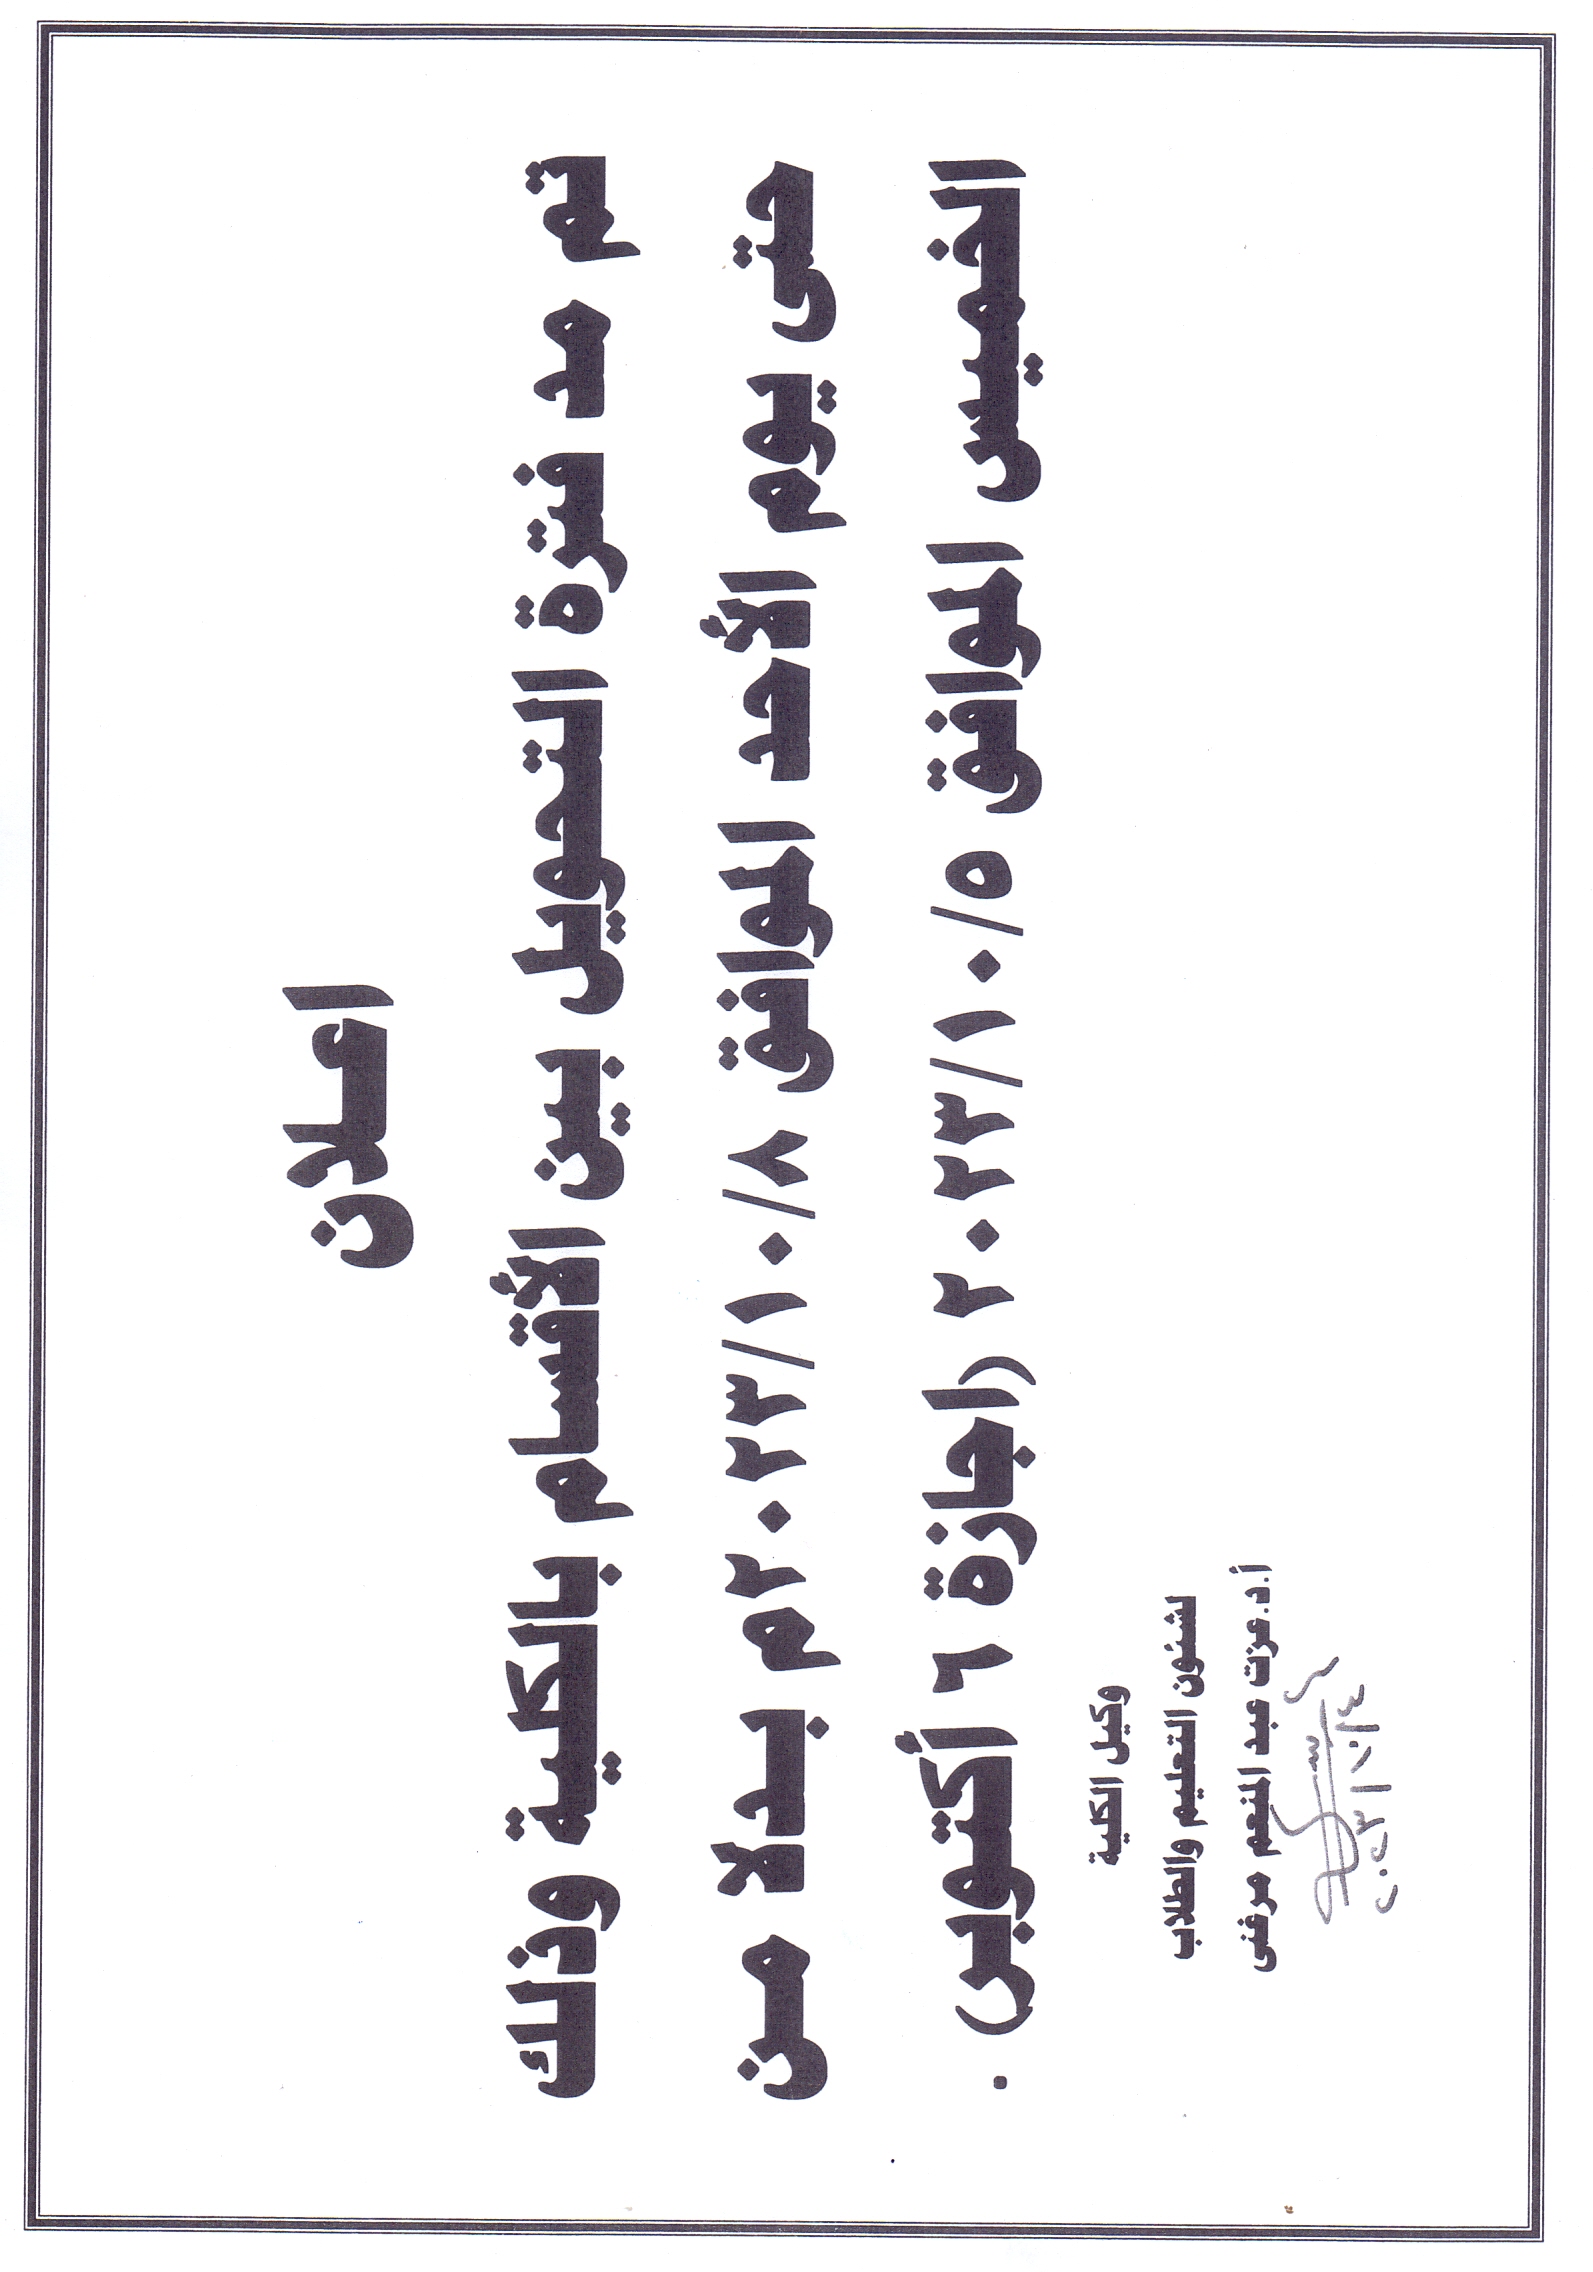 اعلان
تم مد فترة التحويل بين الأقسام بالكلية وذلك
حتى يوم الأحد الموافق ٢٠٢٣/١٠/٨م بدلاً من
الخميس الموافق ٢٠٢٣/١٠/٥ (اجازة ٦ أكتوبر) .
وكيل الكلية
لشئون التعليم والطلاب
أ.د.عزت عبد المنعم مرغنى
٢٠٢٣/١٠/٤